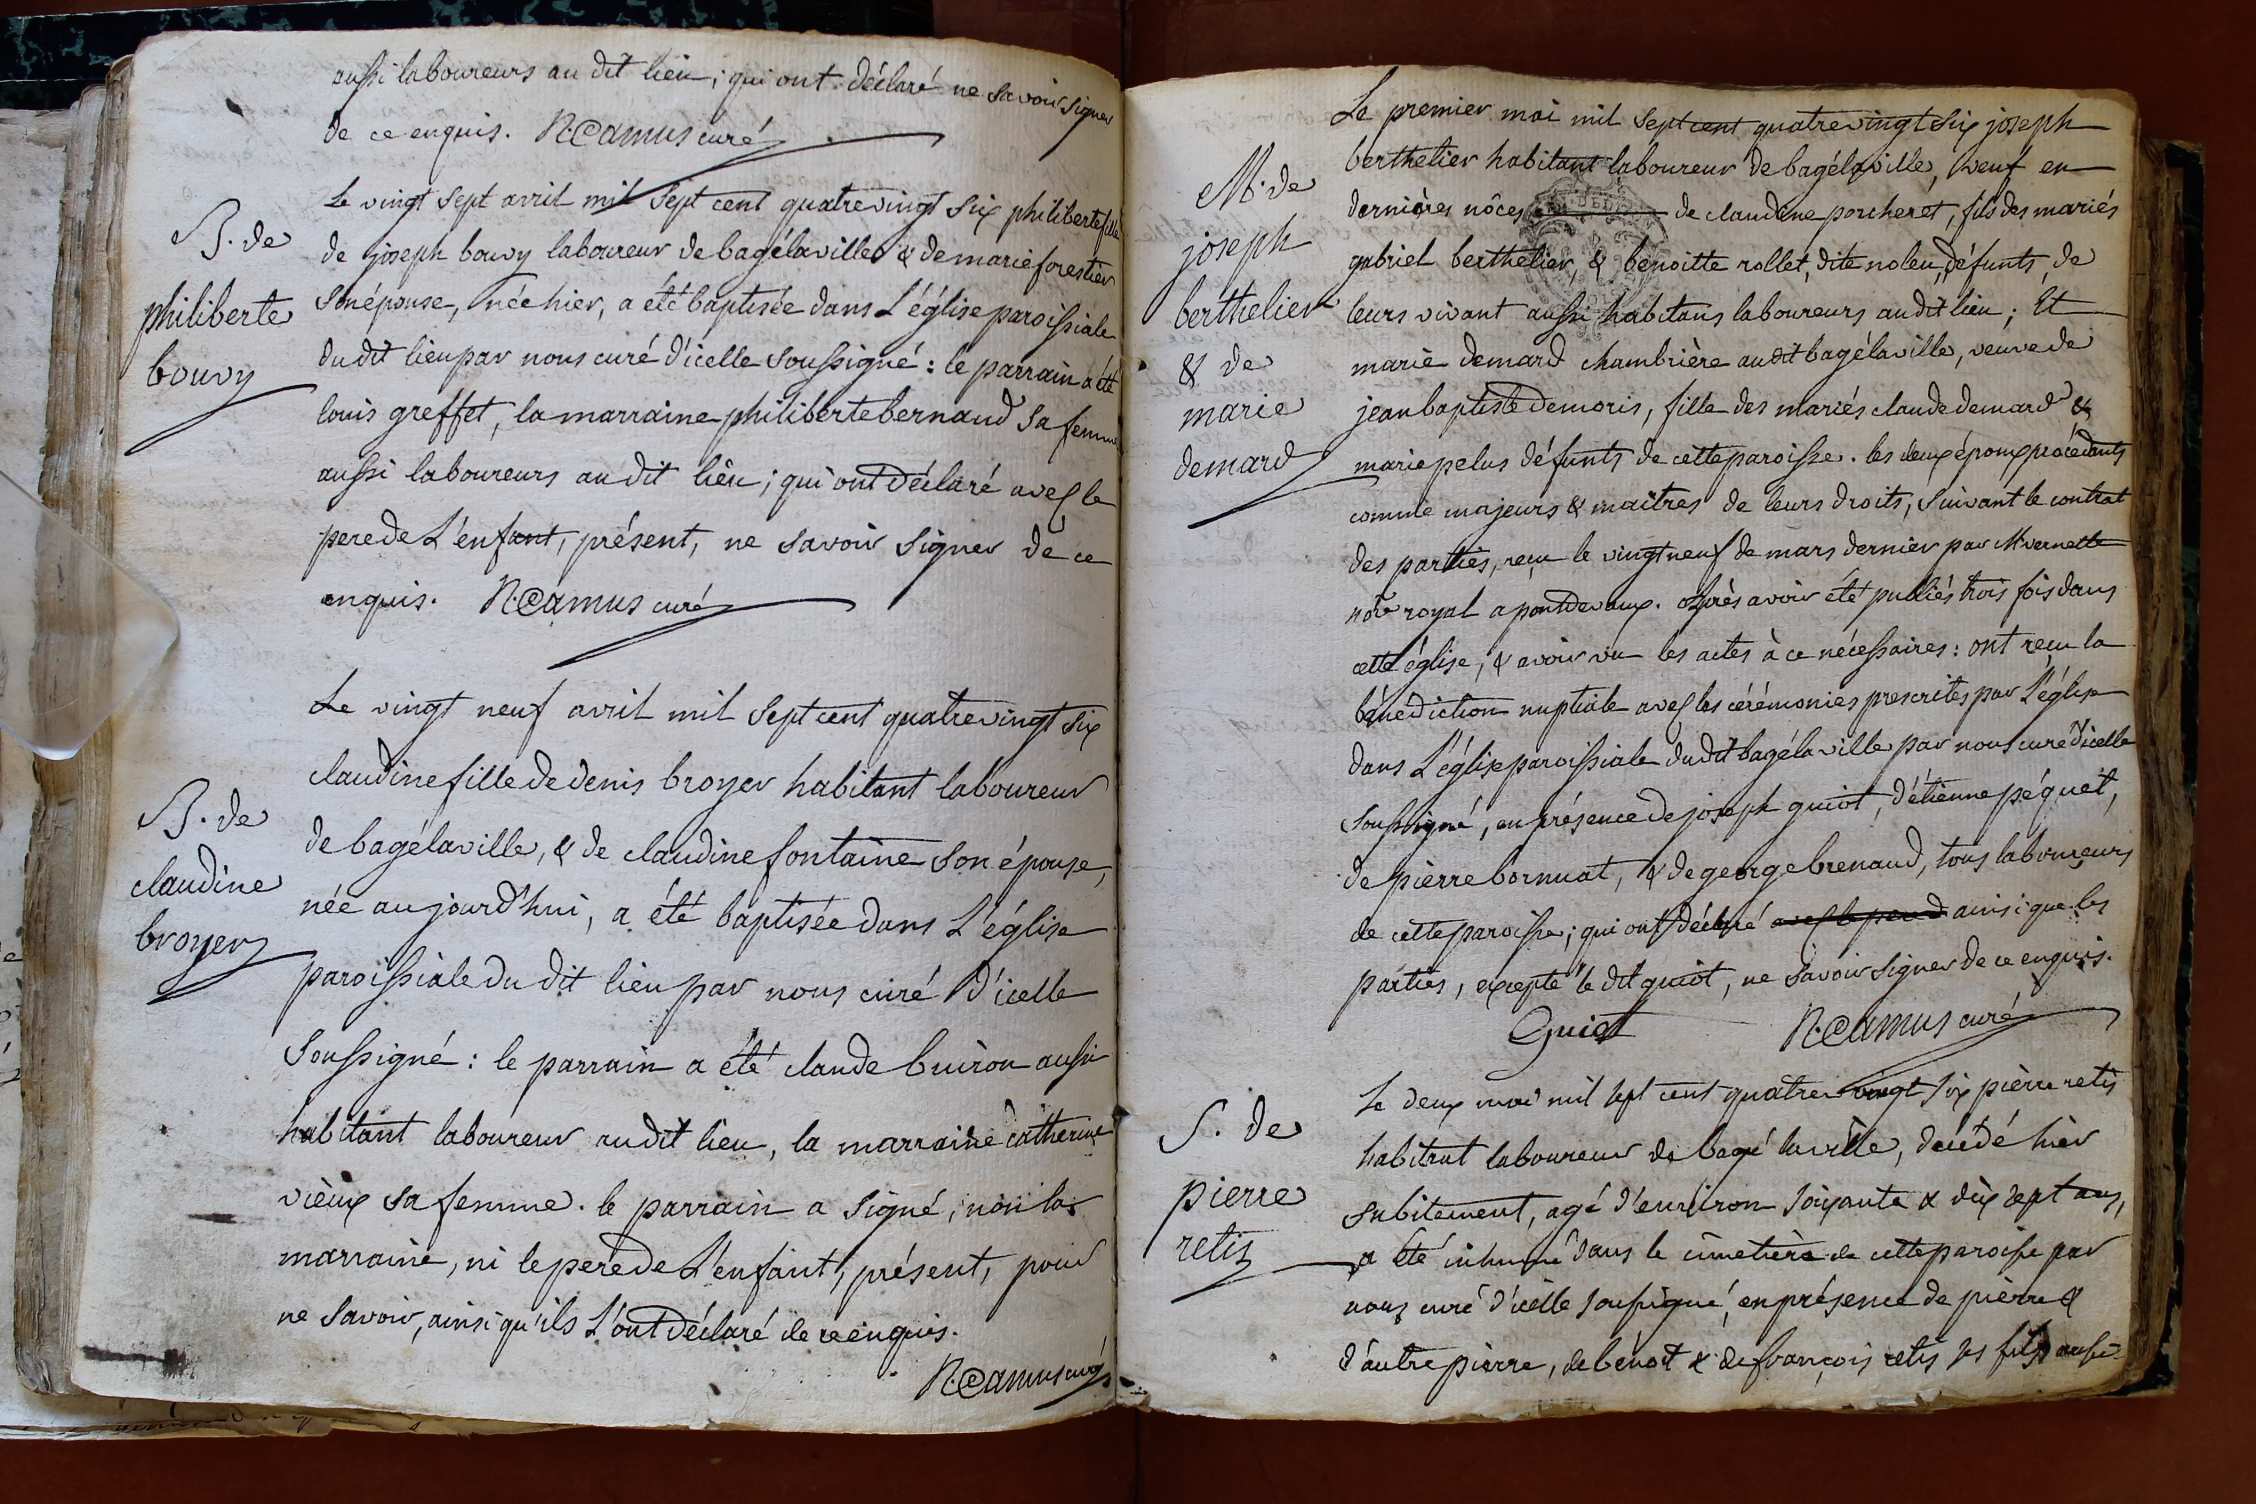 aussi laboureurs au dit lieu; qui ont déclaré ne savoir signer
de ce enquis. N. Camus curé
B. de
philiberte
bouvy
Le vingt sept avril mil sept cent quatre vingt six philiberte fille
de joseph bouvy laboureur de bagélaville & de marie forestier
son épouse, née hier, a été baptisée dans L'église paroissiale
du dit lieu par nous curé d'icelle soussigné: le parrain a été
louis greffet, la marraine philiberte bernaud sa femme
aussi laboureurs au dit lieu; qui ont déclaré avec le
pere de L'enfant, présent, ne savoir signer de ce
enquis. N. Camus curé
B. de
claudine
broyer
Le vingt neuf avril mil sept cent quatre vingt six
claudine fille de denis broyer habitant laboureur
de bagélaville, & de claudine fontaine son épouse,
née aujourd'hui, a été baptisée dans L'église
paroissiale du dit lieu par nous curé d'icelle
soussigné: le parrain a été claude buiron aussi
habitant laboureur audit lieu, la marraine catherine
vieux sa femme. le parrain a signé, non la
marraine, ni le pere de L'enfant, présent, pour
ne savoir, ainsi qu'ils L'ont déclaré de ce enquis.
N. Camus curé
M. de
joseph
berthelier
& de
marie
demard
Le premier mai mil sept cent quatre vingt six joseph
berthelier habitant laboureur de bagélaville, veuf en
dernières nôces de claudine porcheret, fils des mariés
gabriel berthelier, & benoitte rollet, dite noleu, défunts de
leurs vivant aussi habitans laboureurs audit lieu; Et
marie demard chambrière audit bagélaville, veuve de
jean baptiste demoris, fille des mariés claude demard &
marie pelus défunts de cette paroisse. les deux époux procédants
comme majeurs & maîtres de leurs droits, suivant le contrat
des parties, reçu le vingt neuf de mars dernier par Mr vernette
nore royal a pontdevaux. après avoir été publiés trois fois dans
cette église, & avoir vu les actes à ce nécessaires: ont reçu la
bénédiction nuptiale avec les cérémonies prescrites par L'église
dans L'église paroissiale dudit bagélaville par nous curé d'icelle
soussigné, en présence de joseph guiot, d'étienne péquet,
de pierre bornuat, & de george brenaud, tous laboureurs
de cette paroisse; qui ont déclaré ainsi que les
parties, excepté le dit guiot, ne savoir signer de ce enquis.
Guiot N. Camus curé
S. de
pierre
retis
Le deux mai mil sept cent quatre vingt six pierre retis
habitant laboureur de bagé la ville, décédé hier
subitement, agé d'environ soixante & dix sept ans,
a été inhumé dans le cimetière de cette paroisse par
nous curé d'icelle soussigné, en présence de pierre &
d'autre pierre, de benoit & de françois retis ses fils aussi